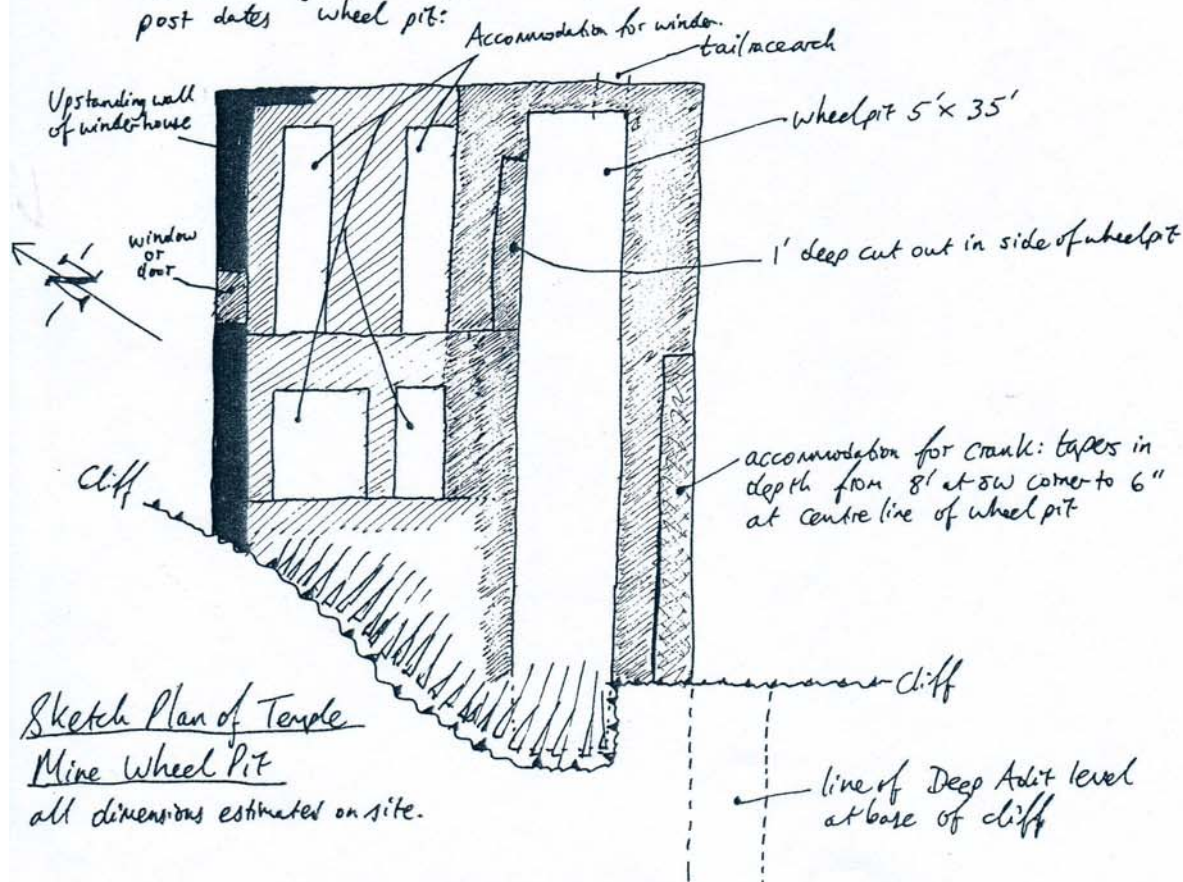 post dates wheel pit:
Accommodation for winder.
tailrace arch
Upstanding wall
of winderhouse
wheelpit 5' x 35'
window
or
door
1' deep cut out in side of wheelpit
Cliff
accommodation for crank: tapers in
depth from 8' at SW corner to 6"
at centre line of wheel pit
Cliff
Sketch Plan of Temple
Mine Wheel Pit
all dimensions estimated on site.
line of Deep Adit level
at base of cliff